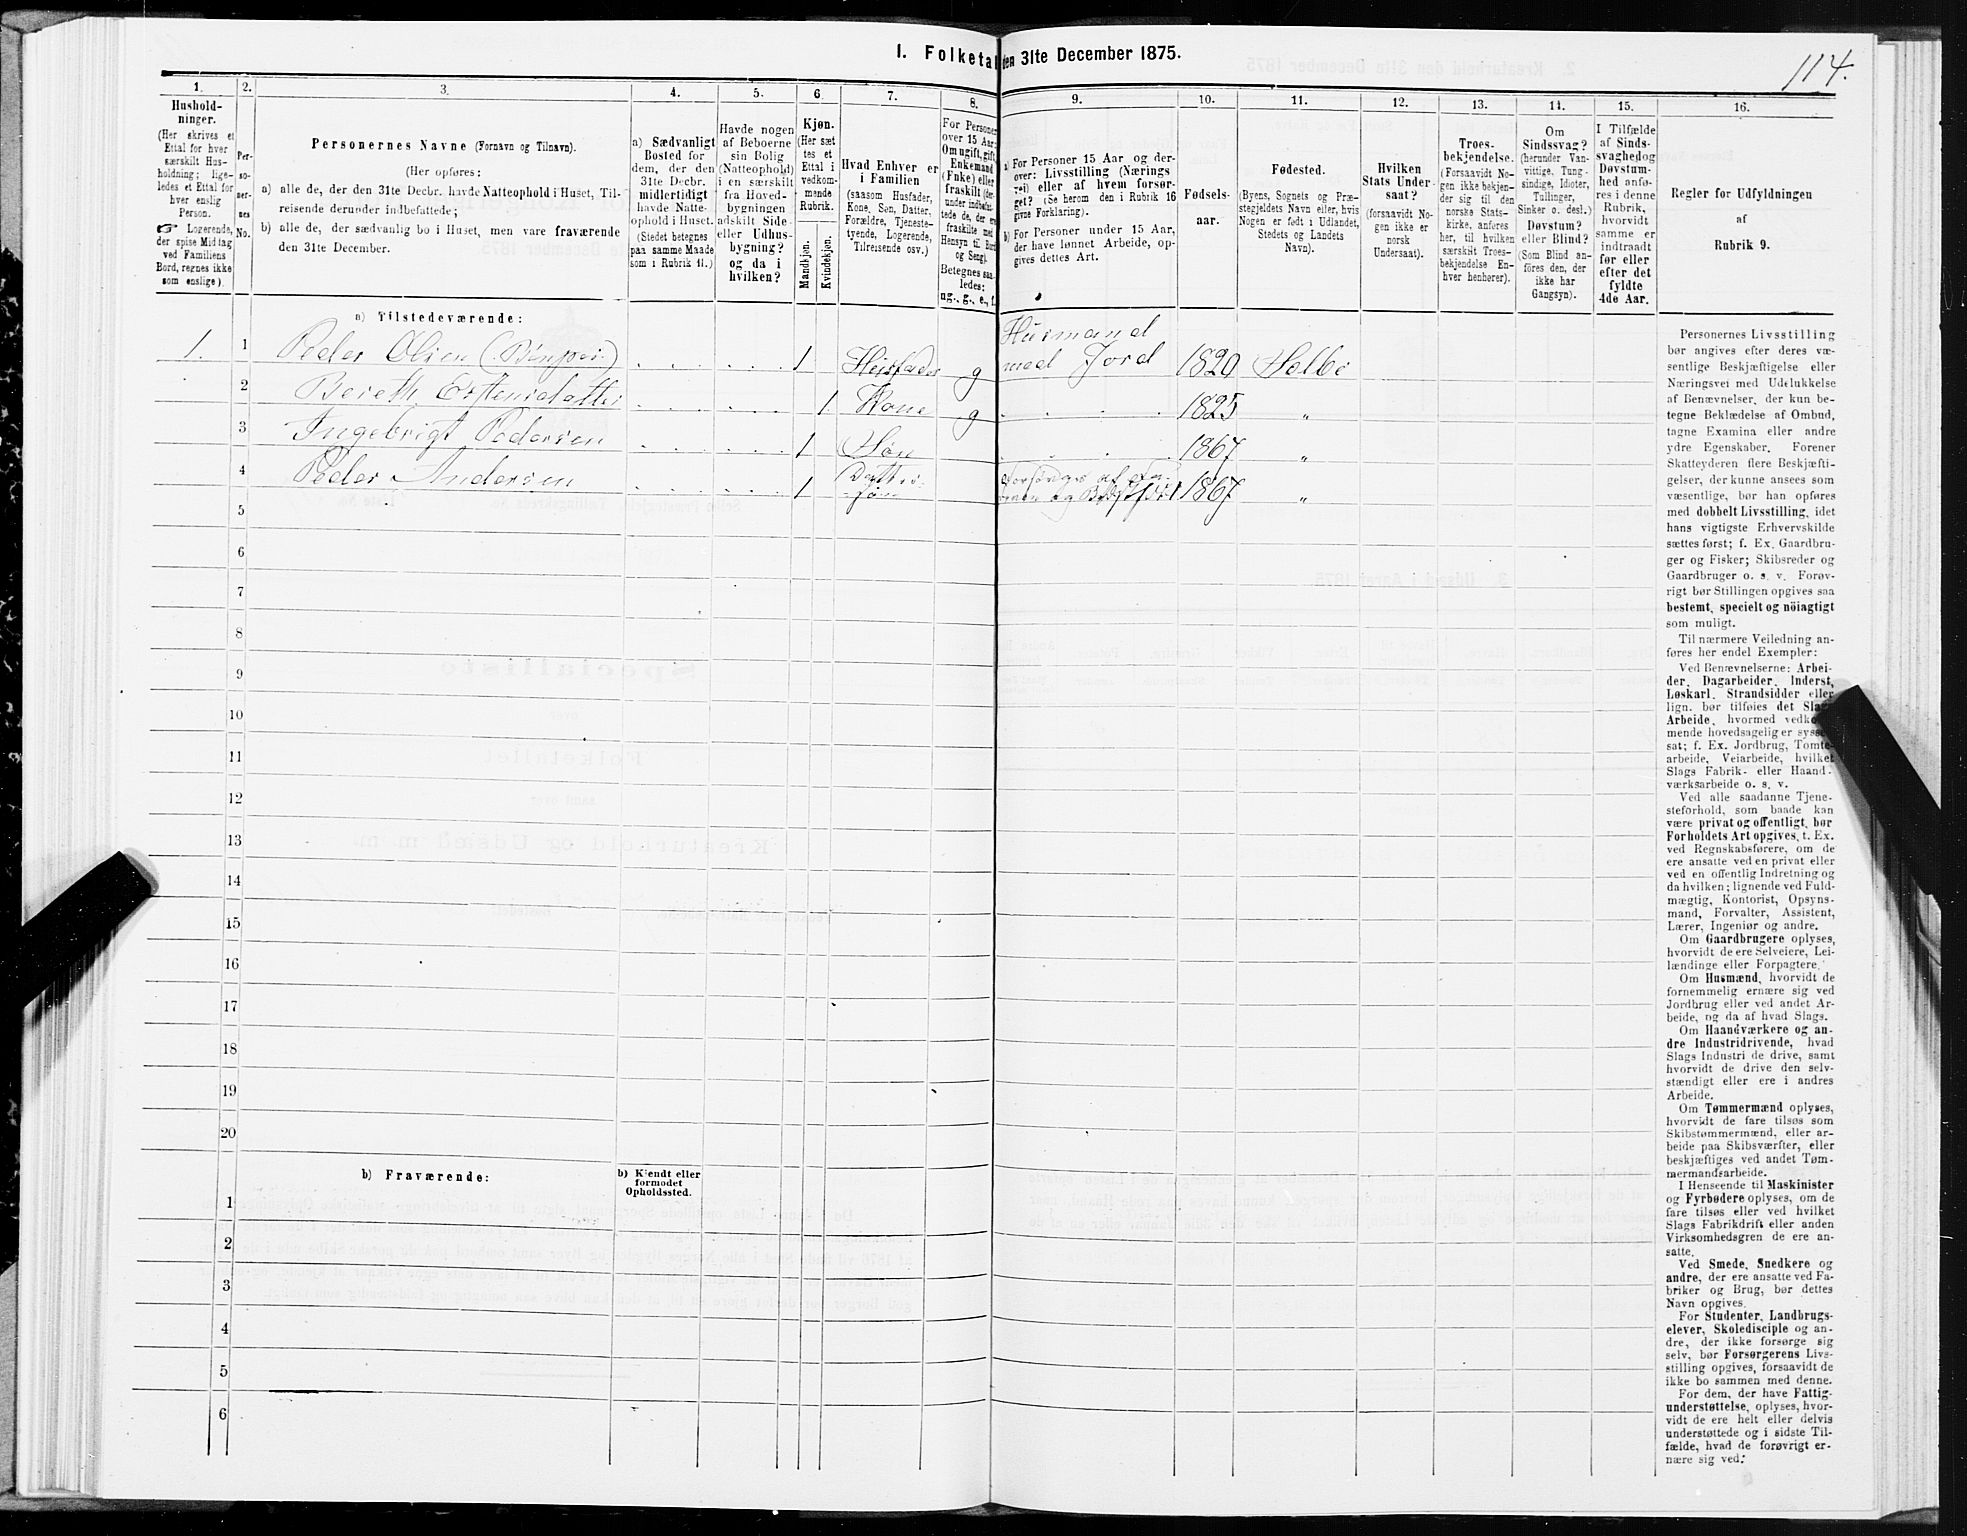 I. Folketal den 31te December 1875.
114.
1.
2.
3.
4.
5.
6.
7.
8.
9.
10.
11.
12.
13.
14.
15.
16.
Hushold-
ninger.
(Her skrives et
Ettal for hver
særskilt Hus-
holdning; lige-
ledes et Ettal for
hver enslig
Person.
☞ Logerende,
der spise Midtag
ved Familiens
Bord, regnes ikke
som enslige).
Per-
so-
ner-
nes
No.
Personernes Navne (Fornavn og Tilnavn).
(Her opføres:
a) alle de, der den 31te Decbr. havde Natteophold i Huset, Til-
reisende derunder indbefattede;
b) alle de, der sædvanlig bo i Huset, men vare fraværende
den 31te December.
a) Sædvanligt
Bosted for
dem, der den
31te Decbr.
midlertidigt
havde Natte-
ophold i Huset.
(Stedet betegnes
paa samme Maade
som i Rubrik 11.)
Havde nogen
af Beboerne
sin Bolig
(Natteophold)
i en særskilt
fra Hoved-
bygningen
adskilt Side-
eller Udhus-
bygning?
og da i
hvilken?
Kjøn.
(Her sæt
tes et
Ettal i
vedkom-
mende
Rubrik.
Mandkjøn.
Kvindekjøn.
Hvad Enhver er
i Familien
(saasom Husfader,
Kone, Søn, Datter,
Forældre, Tjeneste-
tyende, Logerende,
Tilreisende osv.)
For Personer
over 15 Aar:
Om ugift, gift,
Enkemand
(Enke) eller
fraskilt (der-
under indbefat-
tede de, der ere
fraskilte med
Hensyn til Bord
og Seng).
Betegnes saa-
ledes:
ug., g., e., f.
a) For Personer 15 Aar og der-
over: Livsstilling (Nærings
vei) eller af hvem forsør-
get? (Se herom den i Rubrik 16
givne Forklaring).
b) For Personer under 15 Aar,
der have lønnet Arbeide, op-
gives dettes Art.
Fødsels-
aar.
Fødested.
(Byens, Sognets og Præ-
stegjeldets Navn eller, hvis
Nogen er født i Udlandet,
Stedets og Landets
Navn).
Hvilken
Stats Under-
saat?
(forsaavidt No-
gen ikke er
norsk
Undersaat).
Troes-
bekjendelse.
(Forsaavidt No-
gen ikke bekjen-
der sig til den
norske Stats-
kirke, anføres
her, til hvilken
særskilt Troes-
bekjendelse En-
hver henhører).
Om
Sindssvag?
(herunder Van-
vittige, Tung-
sindige, Idioter,
Tullinger,
Sinker o. desl.)
Døvstum?
eller Blind?
(Som Blind an-
føres den, der
ikke har
Gangsyn).
I Tilfælde
af Sinds-
svaghed og
Døvstum-
hed anfø-
res i denne
Rubrik,
hvorvidt
samme er
indtraadt
før eller
efter det
fyldte
4de Aar.
Regler for Udfyldningen
af
Rubrik 9.
a) Tilstedeværende:
1. 1 Peder Olsen 1 Husfader g Husmand med Jord 1820 Selbo
2 Bereth Estensdatter 1 Kone g 1825 "
3 Ingebrigt Pedersen 1 Søn 1867 "
4 Peder Andersen 1 Datter- søn 1867 "
5
6
7
8
9
10
11
12
13
14
15
16
17
18
19
20
b) Fraværende:
b) Kjendt eller
formodet
Opholdssted.
1
2
3
4
5
6
Personernes Livsstilling
bør angives efter deres væ-
sentlige Beskjæftigelse eller
Næringsvei med Udelukkelse
af Benævnelser, der kun be-
tegne Beklædelse af Ombud,
tagne Examina eller andre
ydre Egenskaber. Forener
Skatteyderen flere Beskjæfti-
gelser, der kunne ansees som
væsentlige, bør han opføres
med dobbelt Livsstilling, idet
hans vigtigste Erhvervskilde
sættes først; f. Ex. Gaardbru-
ger og Fisker; Skibsreder og
Gaardbruger o. s. v. Forøv-
rigt bør Stillingen opgives saa
bestemt, specielt og nöiagtigt
som muligt.
Til nærmere Veiledning an-
føres her endel Exempler:
Ved Benævnelserne: Arbei-
der, Dagarbeider, Inderst,
Løskarl, Strandsidder eller
lign. bør tilføies det Slags
Arbeide, hvormed vedkom-
mende hovedsagelig er syssel-
sat; f. Ex. Jordbrug, Tomte-
arbeide, Veiarbeide, hvilket
Slags Fabrik- eller Haand-
værksarbeide o. s. v.
Ved alle saadanne Tjene-
steforhold, som baade kan
være privat og offentligt, bør
Forholdets Art opgives, t. Ex.
ved Regnskabsførere, om de
ere ansatte ved en privat eller
ved en offentlig Indretning og
da hvilken; lignende ved Fuld-
mægtig, Kontorist, Opsyns-
mand, Forvalter, Assistent,
Lærer, Ingeniør og andre.
Om Gaardbrugere oplyses,
hvorvidt de ere Selveiere, Lei-
lændinge eller Forpagtere.
Om Husmænd, hvorvidt de
fornemmelig ernære sig ved
Jordbrug eller ved andet Ar-
beide, og da af hvad Slags.
Om Haandværkere og an-
dre Industridrivende, hvad
Slags Industri de drive, samt
hvorvidt de drive den selv-
stændigt eller ere i andres
Arbeide.
Om Tømmermænd oplyses,
hvorvidt de fare tilsøs som
Skibstømmermænd, eller ar-
beide paa Skibsværfter, eller
beskjæftiges ved andet Tøm-
mermandsarbeide.
I Henseende til Maskinister
og Fyrbødere oplyses, om de
fare tilsøs eller ved hvilket
Slags Fabrikdrift eller anden
Virksomhedsgren de ere an-
satte.
Ved Smede, Snedkere og
andre, der ere ansatte ved Fa-
briker og Brug, bør dettes
Navn opgives.
For Studenter, Landbrugs-
elever, Skoledisciple og an-
dre, der ikke forsørge sig
selv, bør Forsørgerens Livs-
stilling opgives, forsaavidt de
ikke bo sammen med denne.
For dem, der have Fattig-
understøttelse, oplyses, hvor-
vidt de ere helt eller delvis
understøttede og i sidste Til-
fælde, hvad de forøvrigt er-
nære sig ved.